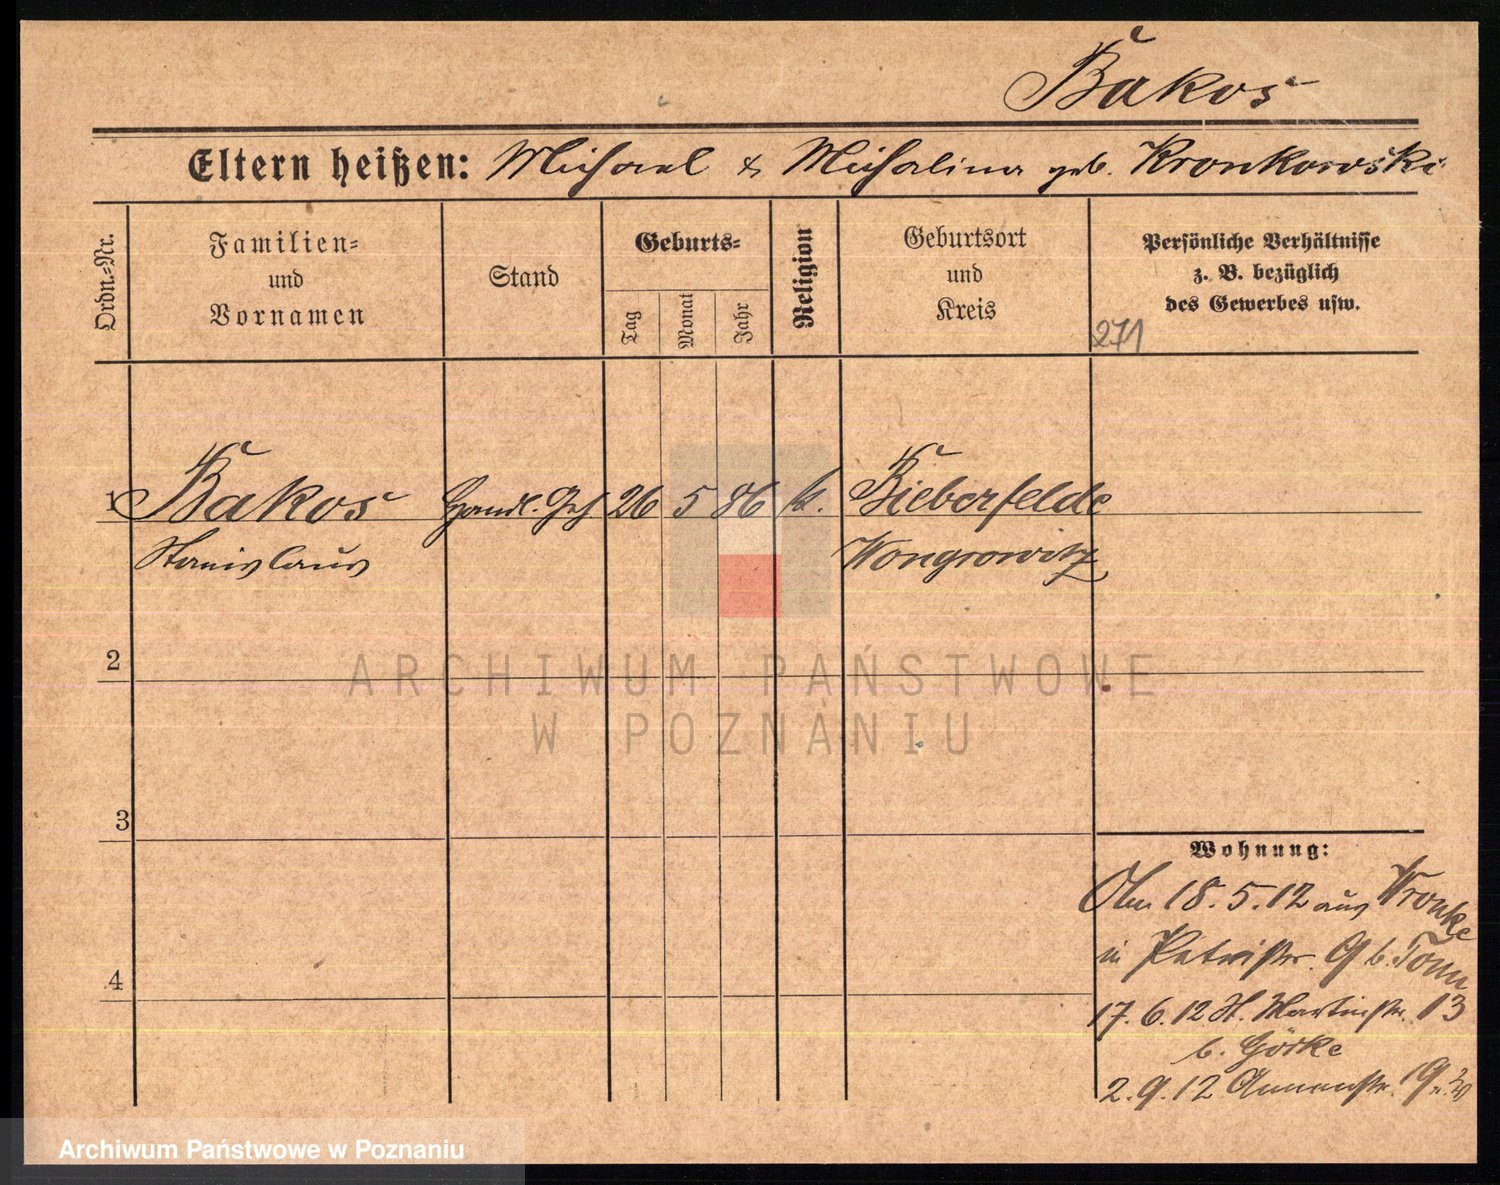 Bakos
Eltern heißen: Michael & Michalina geb. Kronkowski
Ordn.=Nr.
Familien=
und
Vornamen
Stand
Geburts=
Tag
Monat
Jahr
Religion
Geburtsort
und
Kreis
Persönliche Verhältnisse
z. B. bezüglich
des Gewerbes usw.
271
1 Bakos Handl. Geh. 26 5 86 k. Bieberfelde
Stanislaus Wongrowitz
2
ARCHIWUM PAŃSTWOWE
W POZNANIU
3
Wohnung:
18.5.12 aus Wronke
in Petristr. 9 b. Tomm
4
17.6.12 St. Martinstr. 13
b. Görke
2.9.12 Annenstr. 19
Archiwum Państwowe w Poznaniu